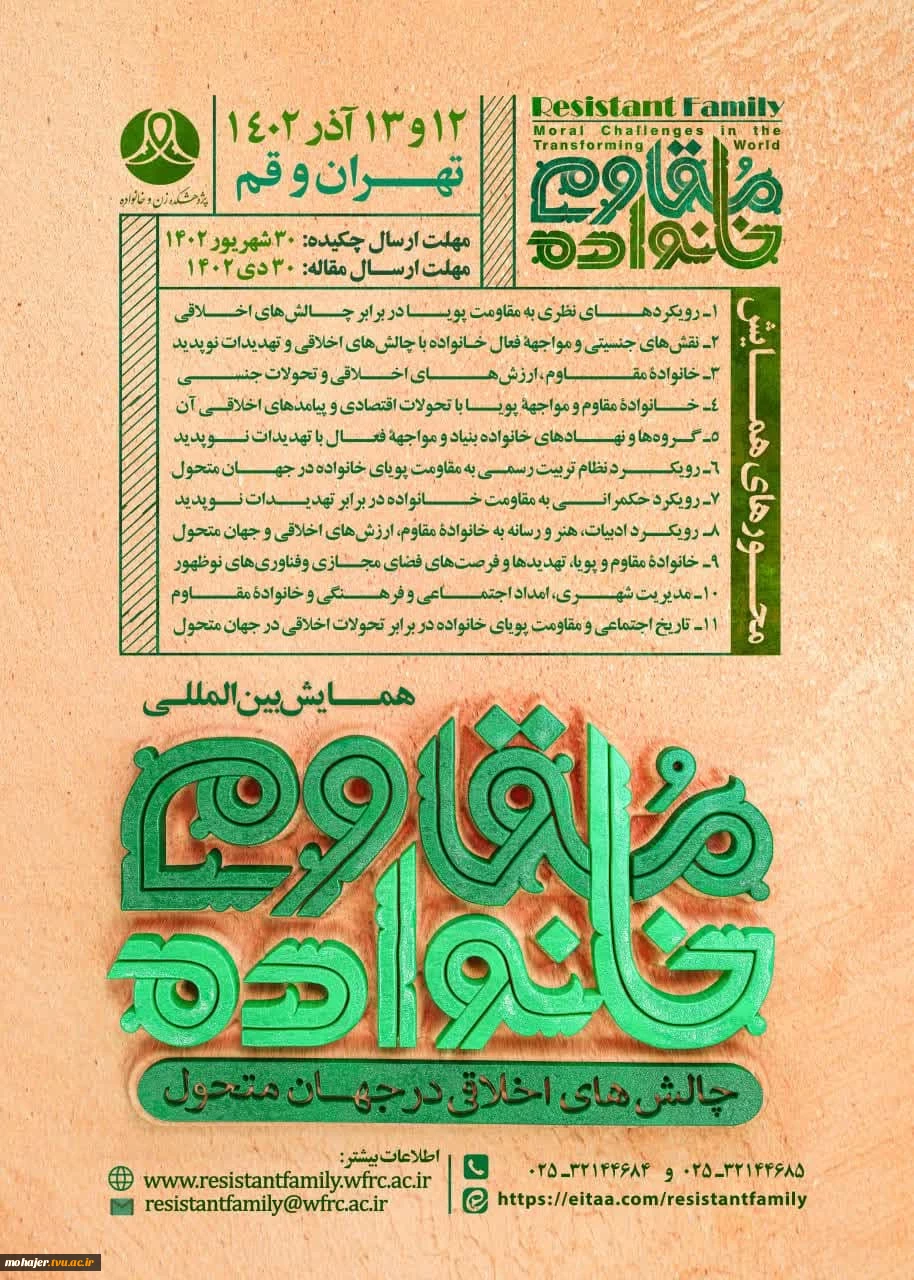 Resistant Family
Moral Challenges in the
Transforming World
خانواده مُقاوم
۱۲ و ۱۳ آذر ۱۴۰۲
تهـران و قم
پژوهشکده زن و خانواده
مهلت ارسال چکیده: ۳۰ شهریور ۱۴۰۲
مهلت ارسـال مقاله: ۳۰ دی ۱۴۰۲
محـورهای همـایش
۱ـ رویکردهـای نظری به مقاومت پویـا در برابر چـالش‌های اخـلاقی
۲ـ نقش‌های جنسیتی و مواجههٔ فعال خـانواده با چالش‌های اخلاقی و تهدیدات نوپدید
۳ـ خـانوادهٔ مقـاوم، ارزش‌هـای اخـلاقی و تحولات جنسـی
۴ـ خـانـوادهٔ مقاوم و مواجههٔ پویـا با تحولات اقتصادی و پیامدهای اخلاقی آن
۵ـ گـروه‌ها و نهـادهای خانواده بنیاد و مواجههٔ فعـال با تهدیدات نـوپدید
۶ـ رویکـرد نظام تربیت رسمـی به مقاومت پویای خانواده در جهـان متحول
۷ـ رویکرد حکمرانـی به مقاومت خـانواده در برابر تهدیـدات نـوپدید
۸ـ رویکـرد ادبیات، هنر و رسانه به خانوادهٔ مقاوم، ارزش‌های اخلاقی و جهان متحول
۹ـ خانوادهٔ مقاوم و پویا، تهدیدها و فرصت‌های فضای مجـازی وفناوری‌های نوظهور
۱۰ـ مدیریت شهـری، امداد اجتمـاعی و فرهـنگی و خانوادهٔ مقـاوم
۱۱ـ تاریخ اجتماعی و مقاومت پویای خانواده در برابر تحولات اخلاقی در جهان متحول
همـایش بین‌المللـی
خانواده مُقاوم
چالش های اخلاقی در جهـان متحول
اطلاعات بیشتر:
www.resistantfamily.wfrc.ac.ir
resistantfamily@wfrc.ac.ir
۰۲۵-۳۲۱۴۴۶۸۵ و ۰۲۵-۳۲۱۴۴۶۸۴
https://eitaa.com/resistantfamily
mohajer.tvu.ac.ir